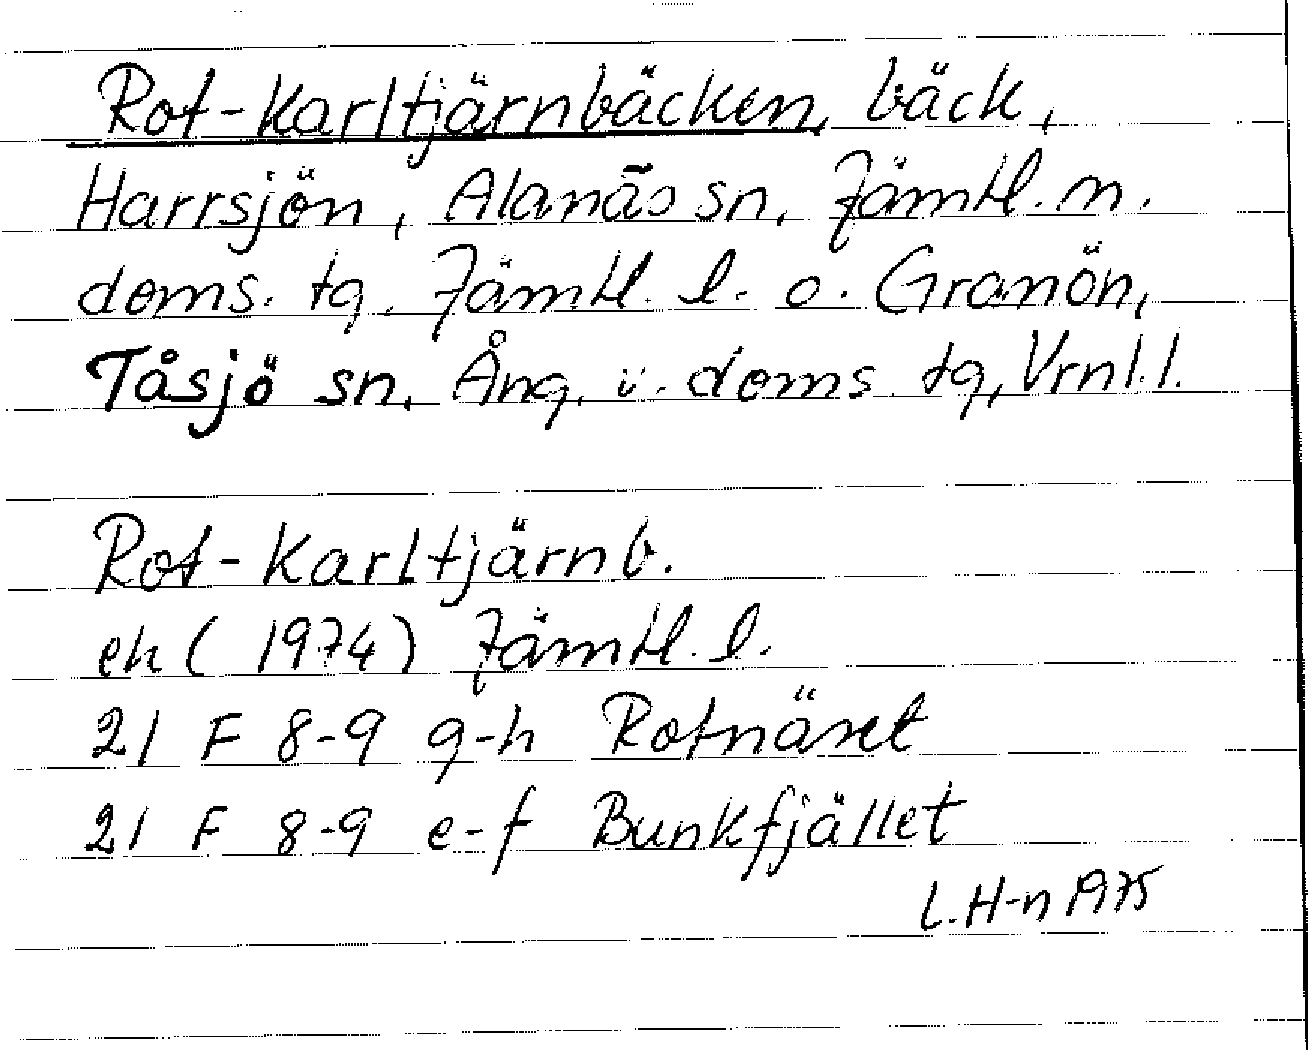 Rot-Karltjärnbäcken, bäck,
Harrsjön, Alanäs sn, Jämtl. n.
doms. tg, Jämtl. l. o. Granön,
Tåsjö sn, Ång. v. doms. tg, Vrnl. l.
Rot-Karltjärnb.
ek (1974) Jämtl. l.
21 F 8-9 g-h Rotnäset
21 F 8-9 e-f Bunkfjället
L. H-n 1975